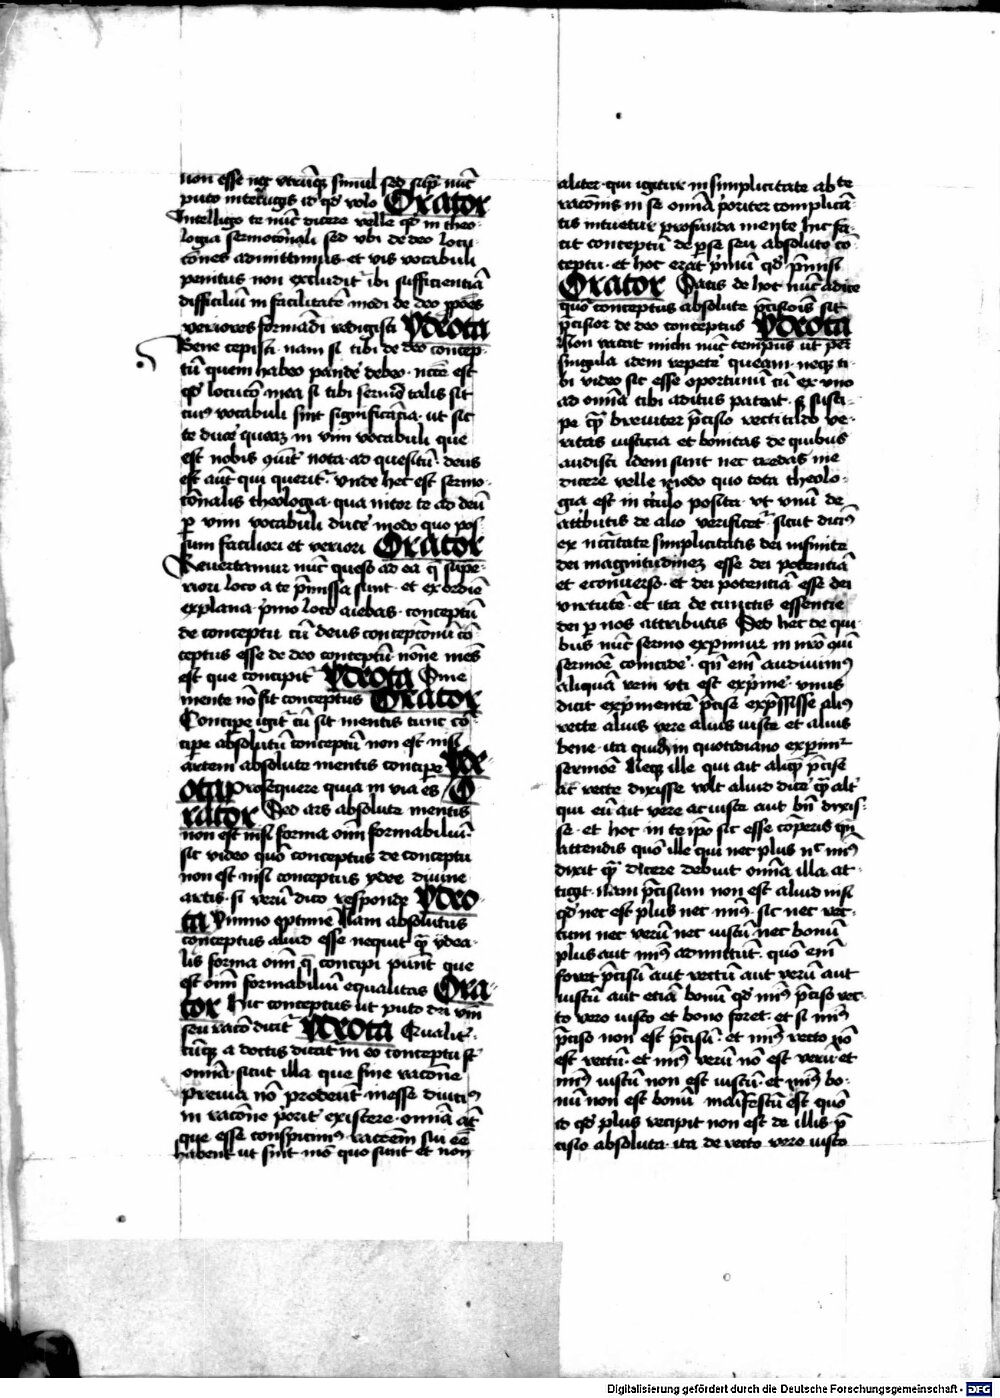 non esse neq vtrūq simul sed supͣ nūc
puto intelligis id qd volo Orator
Intelligo te nūc dicere velle qd in theo-
logia sermocinali sed vbi de deo locu-
cōnes admittimus et vis vocabuli
penitus non excludit ibi sufficienciā
difficiliū in facilitatē modi de deo ppōnes
veriores formādi redigisti ydiota
Bene cepisti nam si tibi de deo concep-
tū quem habeo pandē debeo ncͤē est
qd locucō mea si tibi servire talis sit
cuiꝰ vocabuli sint significātia ut sic
te ducē queam in vim vocabuli que
est nobis cōiter nota ad quesitū deus
est aūt qui querit vnde hec est sermo-
cinalis theologia qua nitor te ad deū
p vim vocabuli ducē modo quo pos
sum faciliori et veriori Orator
Revertamur nūc queso ad ea q supe-
riori loco a te pmissa sunt et ex ordiē
explana pmo loco aiebas conceptū
de conceptu cū deus conceptionū cō-
ceptus esse de deo conceptū nōne mēs
est que concipit ydiota Sine
mente nō fit conceptus Orator
Concipe igit cū sit mentis tunc cō
cipe absolutū conceptū non est nisi
artem absolute mentis concipe ydi-
ota Prosequere quia in via es O
rator Sed ars absolute mentis
non est nisi forma oīm formabiliū
sic video quō conceptus de conceptu
non est nisi conceptus ydee divine
artis si verū dico responde ydio-
ta ymmo optime Nam absolutus
conceptus aliud esse nequit qm ydea-
lis forma oīm q concipi punt que
est oīm formabiliū equalitas Ora-
tor Hic conceptus ut puto dei vbū
seu racō dicit ydiota Qualit-
cūq a doctis dicat in eo conceptu st
omīa sicut illa que sine racōne
previa nō prodeūt inesse dicimꝰ
in racōne pori existere omīa at
que esse conspicimꝰ racōem sui eē
habent ut sint mō quo sunt et non
aliter qui igitur in simplicitate abte
racōnis in se omīa poriter complica
tis intuetur profunda mente hic fa-
cit conceptū de pse seu absoluto cō
ceptu et hoc erat pmū qd pmisi
Orator Satis de hoc nūc adice
quō conceptus absolute pcisiois sit
pcisior de deo conceptus ydiota
Non vacat michi nūc tempus ut per
singula idem repetē queam neq ti-
bi video sic esse oportunū cū ex vno
ad omīa tibi aditus pateat s susci-
pe qm breviter pcisio rectitudo ve-
ritas iusticia et bonitas de quibus
audisti idem sunt nec credas me
dicere velle modo quo tota theolo-
gia est in circulo posita vt vnū de
attributis de alio verificet sicut dicimꝰ
ex ncitate simplicitatis dei infinite
dei magnitudinez esse dei potentiā
et econverso et dei potentiā esse dei
virtutē et ita de cunctis essencie
dei p nos attributis Sed hec de qui-
bus nūc sermo expimur in nro quī
sermoē coincidē qn em audivimꝰ
aliquā rem vti est expme vnus
dicit expmentē pcise expssisse aliꝰ
recte alius vere alius iuste et alius
bene ita quidem quotidiano expimur
sermoē Neq ille qui ait aliqm pcise
ac recte dixisse volt aliud dicē qm alt
qui eū ait vere ac iuste aut bn dixis-
se et hoc in te ipo sic esse cōperis qn
attendis quō ille qui nec plus nc minꝰ
dixit qm dicere debuit omīa illa at-
tigit Nam pcisum non est aliud nisi
qd nec est plus nec minꝰ sic nec rec-
tum nec verū nec iustū nec bonū
plus aut minꝰ admittūt quō em
foret pcisū aut rectum aut verū aut
iustū aut etiā bonū qd minꝰ pciso rec-
to vero iusto et bono foret et si minꝰ
pciso non est pcisū et minꝰ recto nō
est rectū et minꝰ verū nō est verū et
minꝰ iustū non est iustū et minꝰ bo-
nū non est bonū manifestū est quō
id qd plus recipit non est de illis p
cisio absoluta ita de recto vero iusto
Digitalisierung gefördert durch die Deutsche Forschungsgemeinschaft - DFG